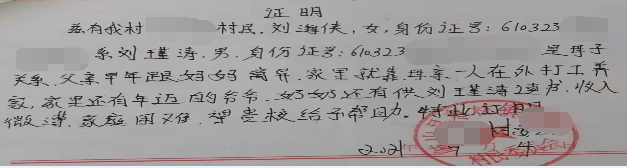 证明
兹有我村 村民,刘海侠,女,身份证号:610323
系刘瑾涛,男.身份证号:610323 是母子
关系.父亲早年跟妈妈离异.家里就靠母亲一人在外打工养
家,家里还有年迈的爷爷.奶奶还有供刘瑾涛读书.收入
微薄.家庭困难.望学校给予帮助.特此证明
村
2021年9月4